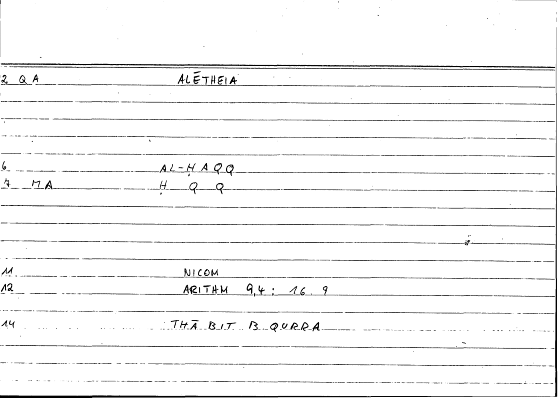 2 QA ALĒTHEIA
6 AL-ḤAQQ
7 MA Ḥ Q Q
11 NICOM
12 ARITHM 9,4: 16.9
14 THĀBIT B QURRA